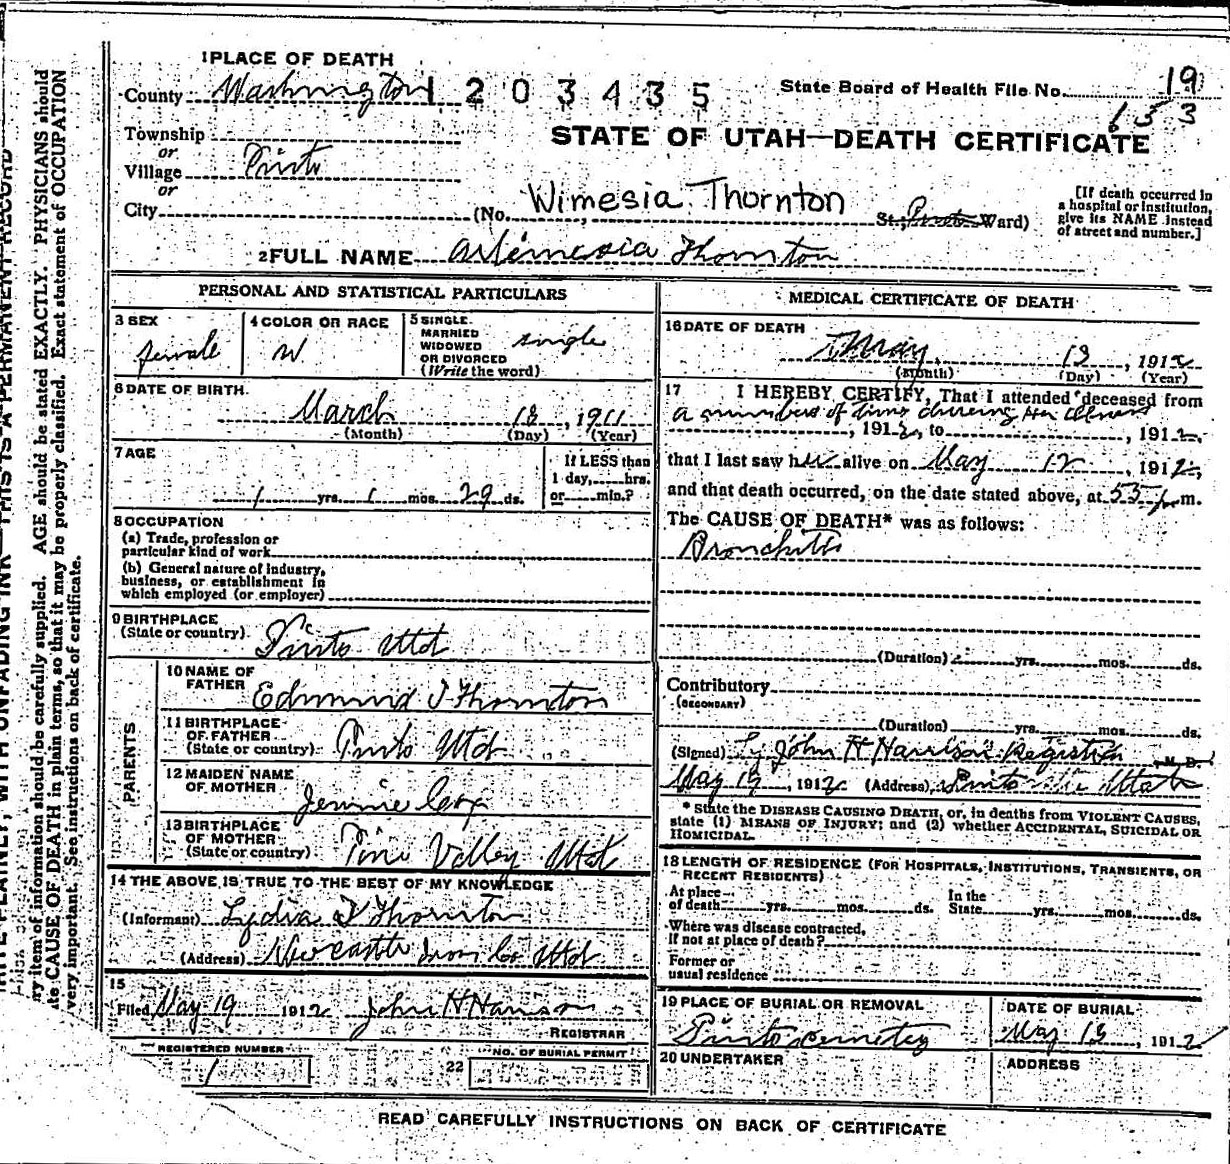 1 PLACE OF DEATH
County Washington 1 2 0 3 4 3 5 State Board of Health File No. 19
153
Township
or
Village Pinto
or
City
STATE OF UTAH—DEATH CERTIFICATE
(No. Wimesia Thornton St., Pinto Ward)
[If death occurred in
a hospital or institution,
give its NAME instead
of street and number.]
2 FULL NAME Artemesia Thornton
PERSONAL AND STATISTICAL PARTICULARS
3 SEX
female
4 COLOR OR RACE
W
5 SINGLE,
MARRIED
WIDOWED
OR DIVORCED
(Write the word)
single
6 DATE OF BIRTH.
March 18, 1911
(Month) (Day) (Year)
7 AGE
1 yrs. 1 mos. 29 ds.
If LESS than
1 day, hrs.
or min.?
8 OCCUPATION
(a) Trade, profession or
particular kind of work
(b) General nature of industry,
business, or establishment in
which employed (or employer)
9 BIRTHPLACE
(State or country) Pinto Utah
PARENTS
10 NAME OF
FATHER Edmund J Thornton
11 BIRTHPLACE
OF FATHER
(State or country) Pinto Utah
12 MAIDEN NAME
OF MOTHER Jennie Cox
13 BIRTHPLACE
OF MOTHER
(State or country) Pine Valley Utah
14 THE ABOVE IS TRUE TO THE BEST OF MY KNOWLEDGE
(Informant) Lydia Thornton
(Address) Newcastle Iron Co Utah
15
Filed May 19 1912 John H Harrison
REGISTRAR
REGISTERED NUMBER
1
22
NO. OF BURIAL PERMIT
MEDICAL CERTIFICATE OF DEATH
16 DATE OF DEATH
May 13, 1912
(Month) (Day) (Year)
17 I HEREBY CERTIFY, That I attended deceased from
a number of times during her illness
, 1912, to , 1912,
that I last saw her alive on May 12, 1912,
and that death occurred, on the date stated above, at m.
The CAUSE OF DEATH* was as follows:
Bronchitis
(Duration) yrs. mos. ds.
Contributory
(SECONDARY)
(Duration) yrs. mos. ds.
(Signed) John H Harrison Registrar M.D.
May 19, 1912 (Address) Pinto Utah
* State the DISEASE CAUSING DEATH, or, in deaths from VIOLENT CAUSES,
state (1) MEANS OF INJURY; and (2) whether ACCIDENTAL, SUICIDAL OR
HOMICIDAL.
18 LENGTH OF RESIDENCE (FOR HOSPITALS, INSTITUTIONS, TRANSIENTS, OR
RECENT RESIDENTS)
At place
of death yrs. mos. ds.
In the
State yrs. mos. ds.
Where was disease contracted,
if not at place of death?
Former or
usual residence
19 PLACE OF BURIAL OR REMOVAL
Pinto Cemetery
DATE OF BURIAL
May 13, 1912
20 UNDERTAKER
ADDRESS
READ CAREFULLY INSTRUCTIONS ON BACK OF CERTIFICATE
WRITE PLAINLY, WITH UNFADING INK—THIS IS A PERMANENT RECORD
ry item of information should be carefully supplied. AGE should be stated EXACTLY. PHYSICIANS should
te CAUSE OF DEATH in plain terms, so that it may be properly classified. Exact statement of OCCUPATION
very important. See instructions on back of certificate.